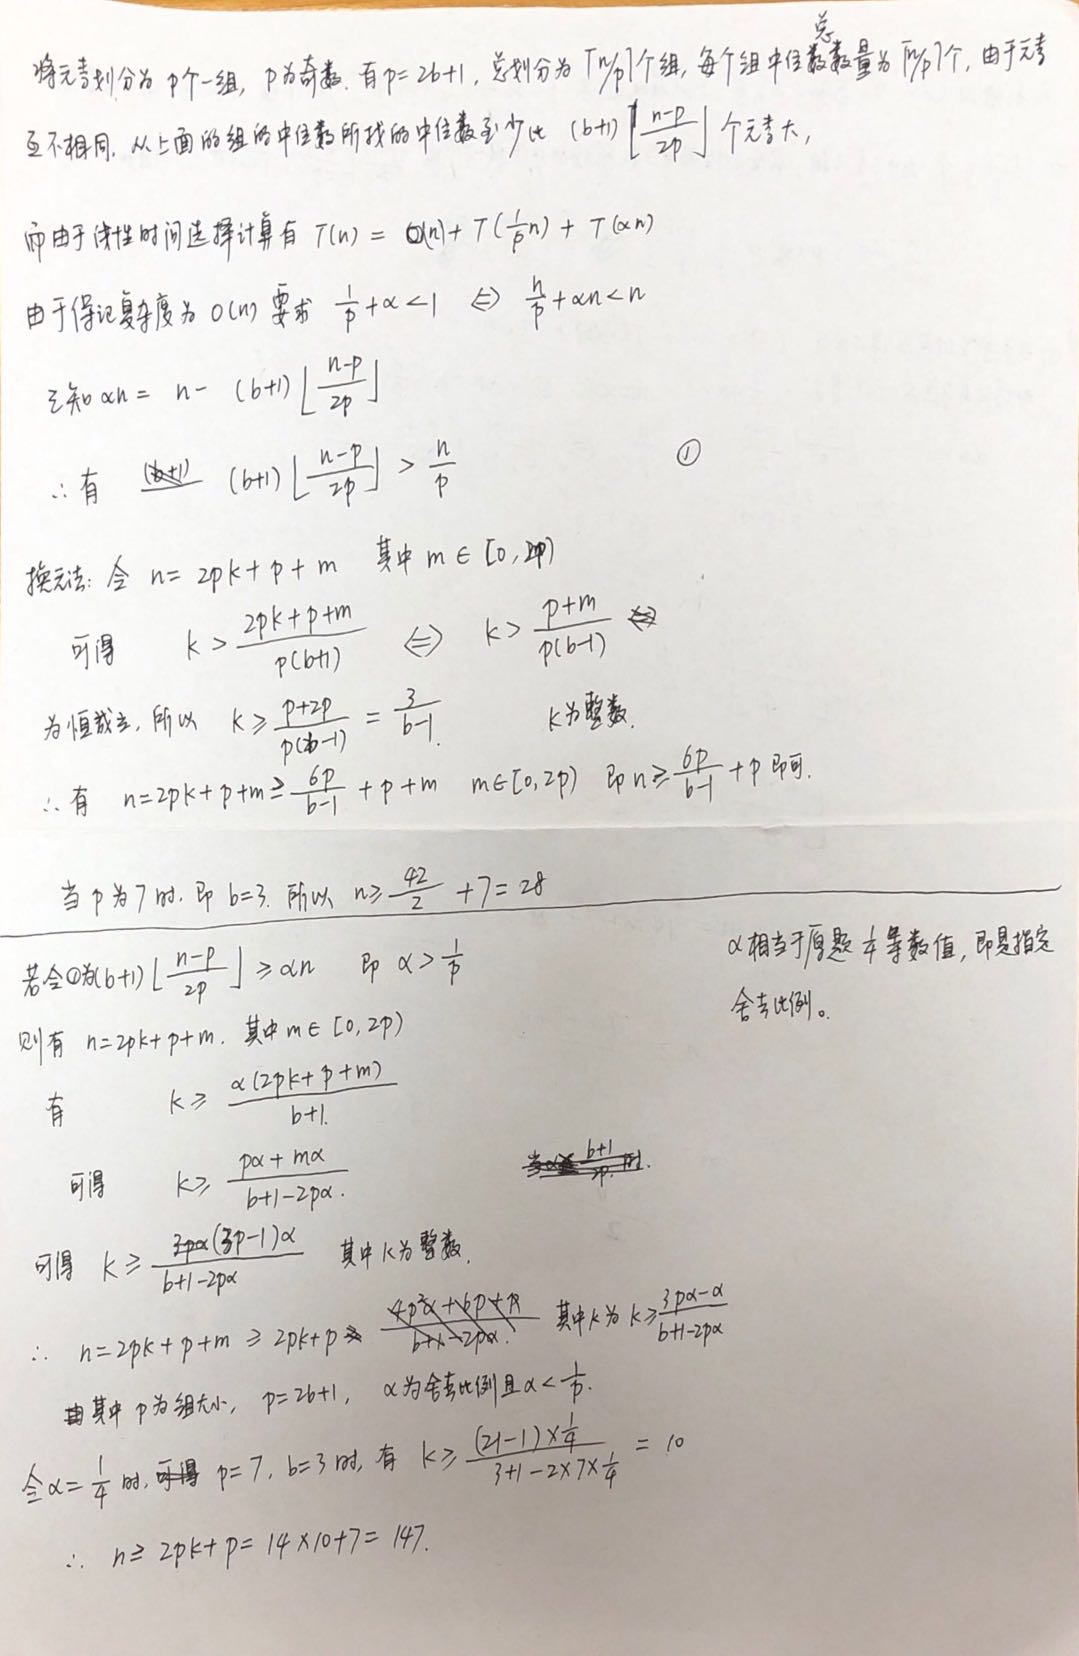 总
将元素划分为 p个一组, p为奇数. 有p=2b+1, 总划分为 ⌈n/p⌉个组, 每个组中位数数量为⌈n/p⌉个, 由于元素
互不相同. 从上面的组的中位数所找的中位数至少比 (b+1)⌊(n-p)/2p⌋ 个元素大,
而由于线性时间选择计算有 T(n) = O(n) + T(1/p n) + T(αn)
由于保记复杂度为 O(n) 要求 1/p + α < 1 ⇔ n/p + αn < n
已知 αn = n - (b+1)⌊(n-p)/2p⌋
∴ 有 (b+1)⌊(n-p)/2p⌋ > n/p ①
换元法: 令 n = 2pk + p + m 其中 m ∈ [0, 2p)
可得 k > (2pk+p+m)/(p(b+1)) ⇔ k > (p+m)/(p(b-1))
为恒成立, 所以 k ≥ (p+2p)/(p(b-1)) = 3/(b-1). k为整数.
∴ 有 n=2pk+p+m ≥ 6p/(b-1) + p + m m∈[0, 2p) 即 n ≥ 6p/(b-1) + p 即可.
当 p 为 7 时. 即 b=3. 所以 n ≥ 42/2 + 7 = 28
若令①为(b+1)⌊(n-p)/2p⌋ ≥ αn 即 α > 1/p
α相当于原题 1/4 等数值, 即是指定
舍去比例。
则有 n=2pk+p+m. 其中 m ∈ [0, 2p)
有 k ≥ α(2pk+p+m)/(b+1)
可得 k ≥ (pα+mα)/(b+1-2pα).
可得 k ≥ (3p-1)α/(b+1-2pα) 其中 k 为整数.
∴ n=2pk+p+m ≥ 2pk+p 其中 k 为 k ≥ (3pα-α)/(b+1-2pα)
其中 p 为组大小, p=2b+1, α为舍去比例且 α < 1/p.
令 α = 1/4 时, p=7, b=3 时, 有 k ≥ ((21-1)×1/4)/(3+1-2×7×1/4) = 10
∴ n ≥ 2pk+p = 14×10+7 = 147.